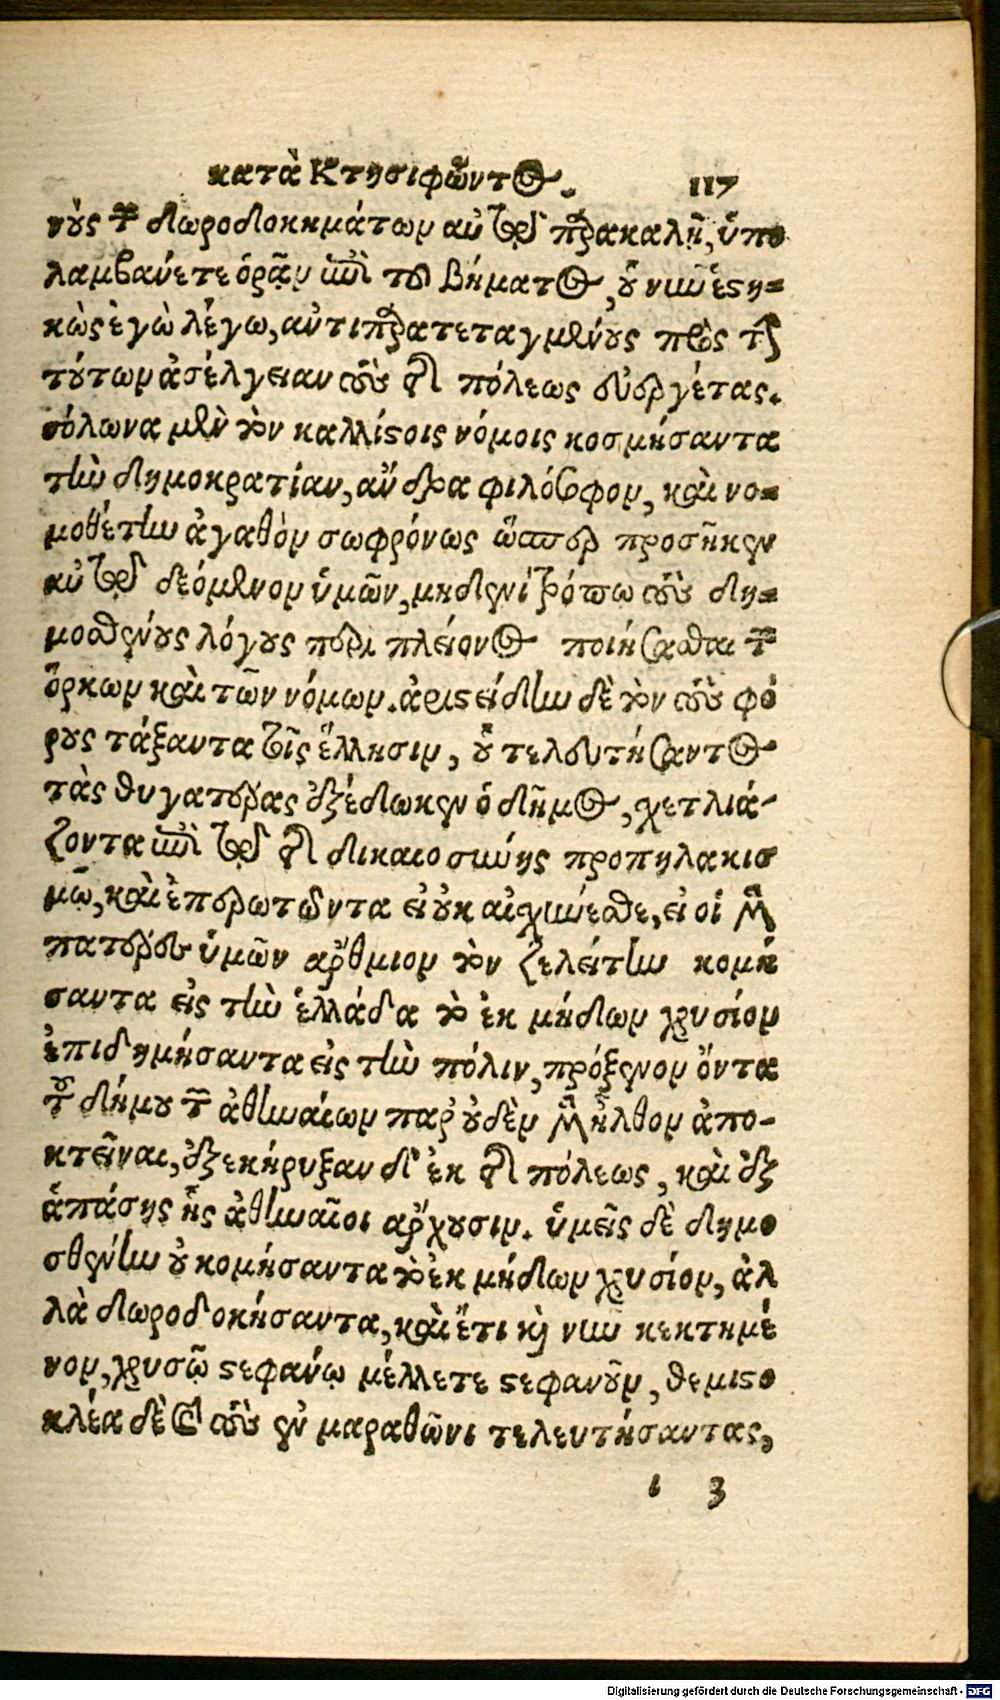 κατὰ Κτησιφῶντος. 117
νοὺς τῶν δωροδοκημάτων αὐτῷ παρακαλῇ, ὑπο
λαμβάνετε ὁρᾷν ἐπὶ τοῦ βήματος, οὗ νῦν ἑστη=
κὼς ἐγὼ λέγω, ἀντιπαρατεταγμένους πρὸς τὴν
τούτων ἀσέλγειαν τοὺς τῆς πόλεως εὐεργέτας.
σόλωνα μὲν τὸν καλλίστοις νόμοις κοσμήσαντα
τὴν δημοκρατίαν, ἄνδρα φιλόσοφον, καὶ νο=
μοθέτην ἀγαθὸν σωφρόνως ὥσπερ προσῆκεν
αὐτῷ δεόμενον ὑμῶν, μηδενὶ τρόπῳ τοὺς δη=
μοσθένους λόγους περὶ πλείονος ποιήσασθαι τῶν
ὅρκων καὶ τῶν νόμων. ἀριστείδην δὲ τὸν τοὺς φό
ρους τάξαντα τοῖς ἕλλησιν, οὗ τελευτήσαντος
τὰς θυγατέρας ἐξέδωκεν ὁ δῆμος, σχετλιά-
ζοντα ἐπὶ τῷ τῆς δικαιοσύνης προπηλακισ
μῷ, καὶ ἐπερωτῶντα εἰ οὐκ αἰσχύνεσθε, εἰ οἱ μὲν
πατέρες ὑμῶν ἄρθμιον τὸν ζελείτην κομί
σαντα εἰς τὴν ἑλλάδα τὸ ἐκ μήδων χρυσίον
ἐπιδημήσαντα εἰς τὴν πόλιν, πρόξενον ὄντα
τοῦ δήμου τῶν ἀθηναίων παρ' οὐδὲν μὲν ἦλθον ἀπο-
κτεῖναι, ἐξεκήρυξαν δ' ἐκ τῆς πόλεως, καὶ ἐξ
ἁπάσης ἧς ἀθηναῖοι ἄρχουσιν. ὑμεῖς δὲ δημο
σθένην οὐ κομήσαντα τὸ ἐκ μήδων χρυσίον, ἀλ
λὰ δωροδοκήσαντα, καὶ ἔτι καὶ νῦν κεκτημέ
νον, χρυσῷ στεφάνῳ μέλλετε στεφανοῦν, θεμιστο
κλέα δὲ καὶ τοὺς ἐν μαραθῶνι τελευτήσαντας,
ι 3
Digitalisierung gefördert durch die Deutsche Forschungsgemeinschaft - DFG